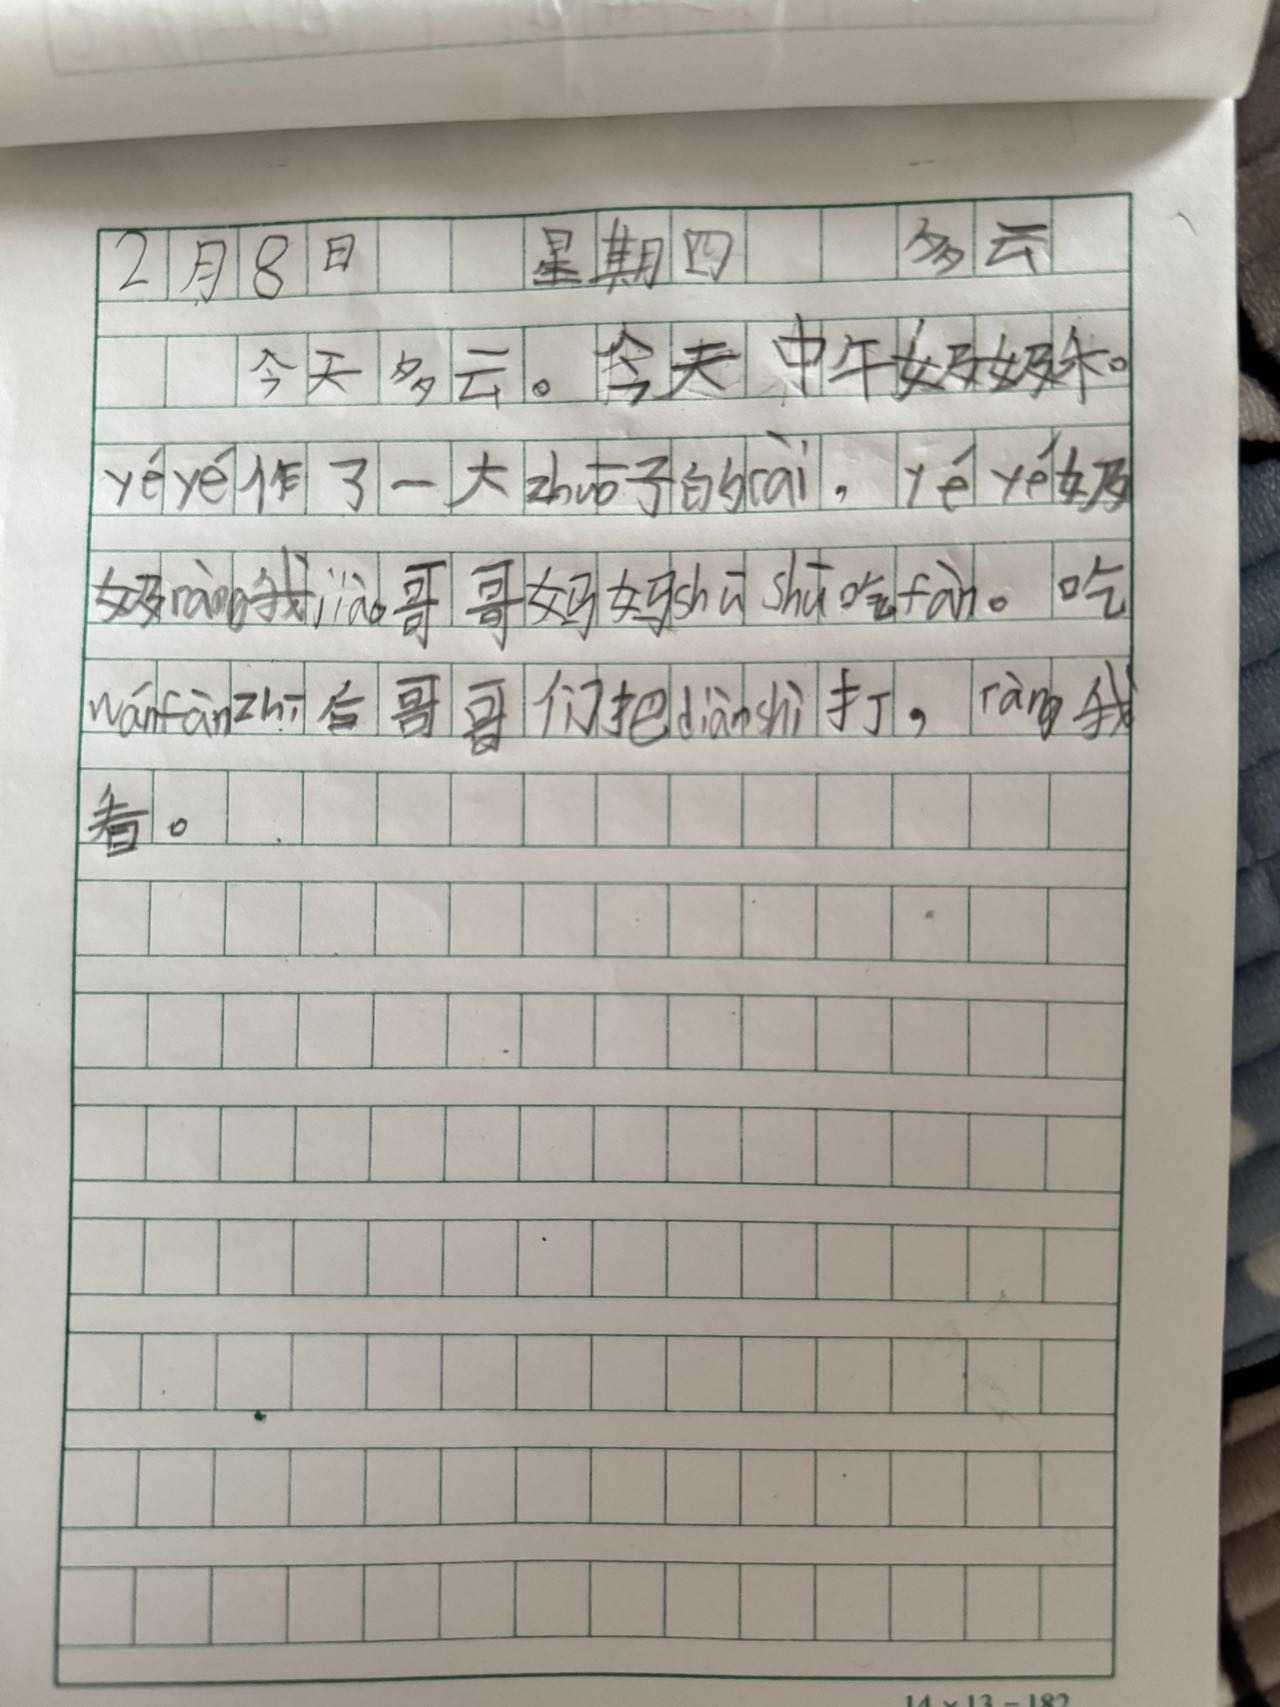 2月8日 星期四 多云
今天多云。今天中午奶奶和。
yéyé作了一大zhuō子的cài，yéyé奶
奶ràng我jiào哥哥妈妈shūshū吃fàn。吃
wánfànzhī后哥哥们把diànshì打，ràng我
看。
14×13=182